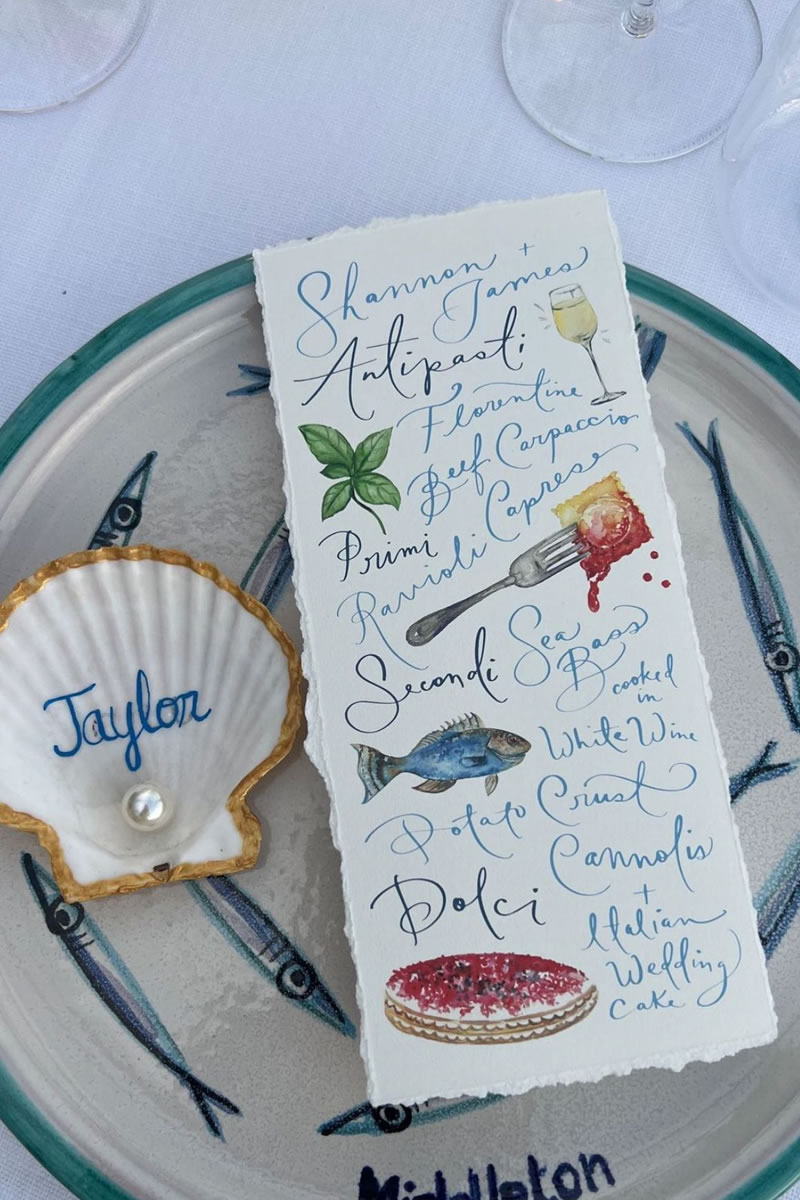 Shannon +
James
Antipasti
Florentine
Beef Carpaccio
Caprese
Primi
Ravioli
Secondi
Sea
Bass
cooked
in
White Wine
Potato Crust
Dolci
Cannolis
+
Italian
Wedding
Cake
Taylor
Middleton